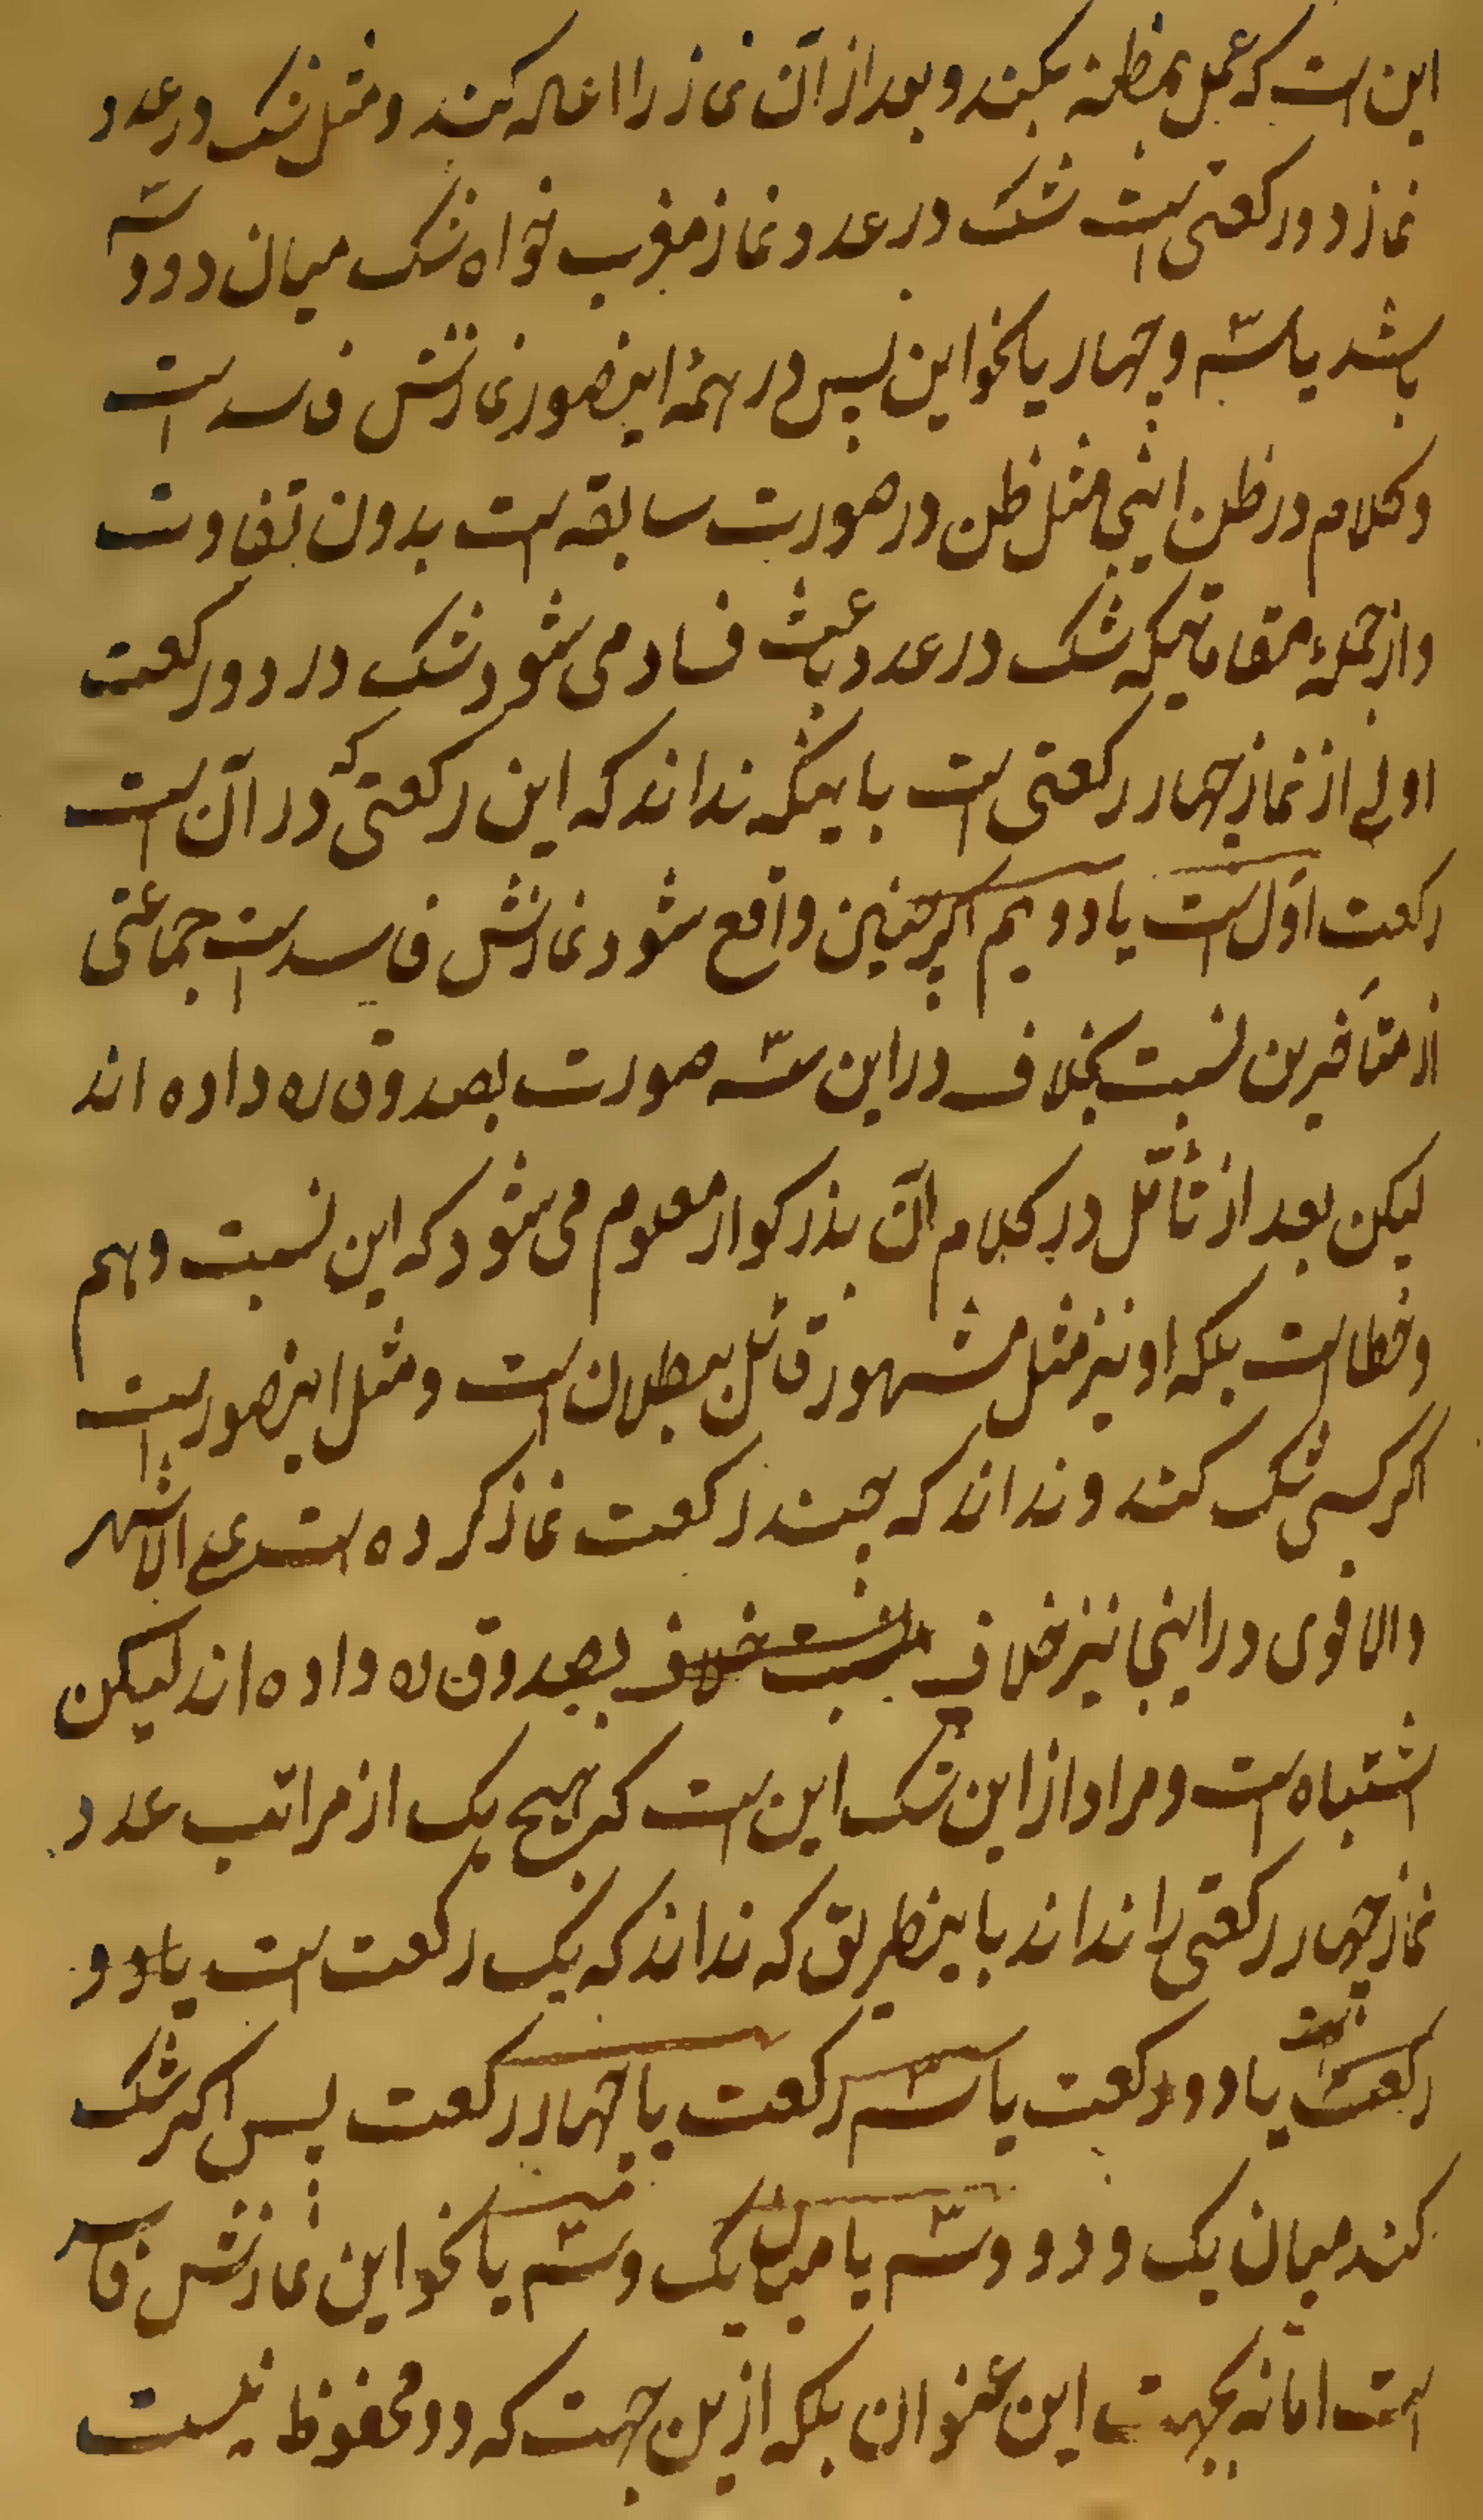 این است که عمل بمظنه بکند و بعد از آن نماز را اعاله کند و مثل شک در عدد
نماز دو رکعتی است شک در عدد نماز مغرب خواه شک میان دو و سه
باشد یا سه و چهار یا نحو این پس در همهٔ اینصور نمازش فاسد است
و کلام در ظن اینجا مثل ظن در صورت سابقه است بدون تفاوت
و از جملهٔ مقاماتیکه شک در عدد باعث فساد می شود شک در دو رکعت
اولی از نماز چهار رکعتی است باینکه نداند که این رکعتی که در آن است
رکعت اول است یا دویم اگر چنین واقع شود نمازش فاسد است جماعتی
از متأخرین نسبت بخلاف در این سه صورت بصدوق ره داده اند
لیکن بعد از تأمل در کلام آن بذرکوار معلوم می شود که این نسبت وهم
و خطا است بلکه او نیز مثل مشهور قائل ببطلان است و مثل اینصور است
اکر کسی شک کند و نداند که چند رکعت نماز کرده است علی الاشهر
والاقوی در اینجا نیز خلاف بصدوق ره داده اند لیکن
اشتباه است و مراد از این شک این است که هیچ یک از مراتب عدد
نماز چهار رکعتی را نداند باینطریق که نداند که یک رکعت است یا دو
رکعت است یا دو رکعت یا سه رکعت یا چهار رکعت پس اکر شک
کند میان یک و دو و سه یا میان یک و سه یا نحو این نمازش فاسد
است اما نه بجهت این عنوان بلکه از این جهت که دو محفوظ نیست